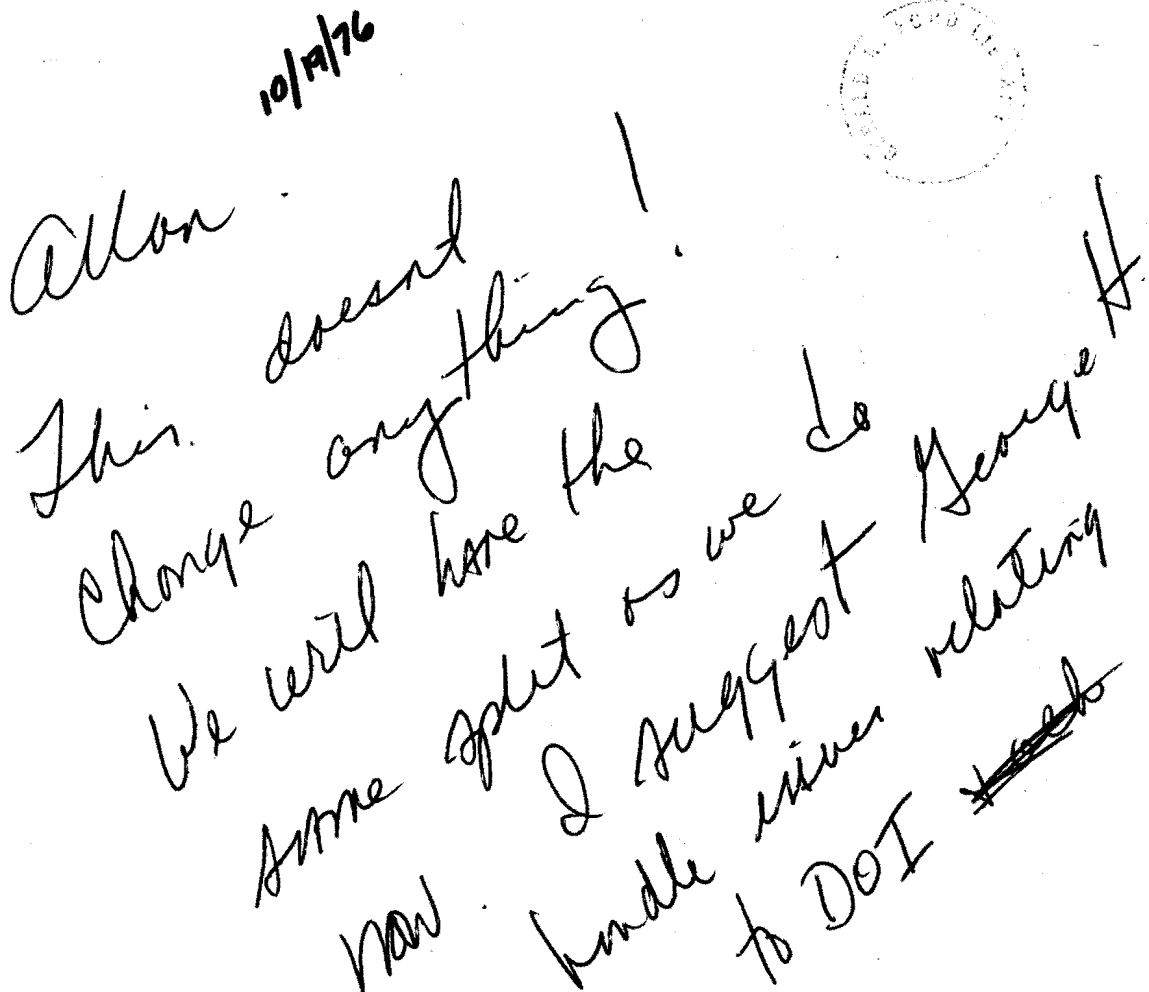 10/19/76
GERALD R. FORD LIBRARY
Allan
This doesnt
change anything!
We will have the
same split as we do
now. I suggest George H
handle issues relating
to DOI